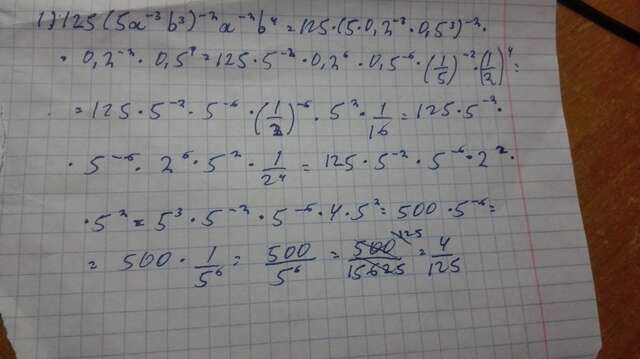 1) 125 (5a⁻³b³)⁻² a⁻²b⁴ = 125 · (5 · 0,2⁻³ · 0,5³)⁻² ·
· 0,2⁻² · 0,5⁴ = 125 · 5⁻² · 0,2⁶ · 0,5⁻⁶ · (1/5)⁻² · (1/2)⁴ =
= 125 · 5⁻² · 5⁻⁶ · (1/2)⁻⁶ · 5² · 1/16 = 125 · 5⁻² ·
· 5⁻⁶ · 2⁶ · 5² · 1/2⁴ = 125 · 5⁻² · 5⁻⁶ · 2² ·
· 5² = 5³ · 5⁻² · 5⁻⁶ · 4 · 5² = 500 · 5⁻⁶ =
= 500 · 1/5⁶ = 500/5⁶ = 500/15625 125 = 4/125